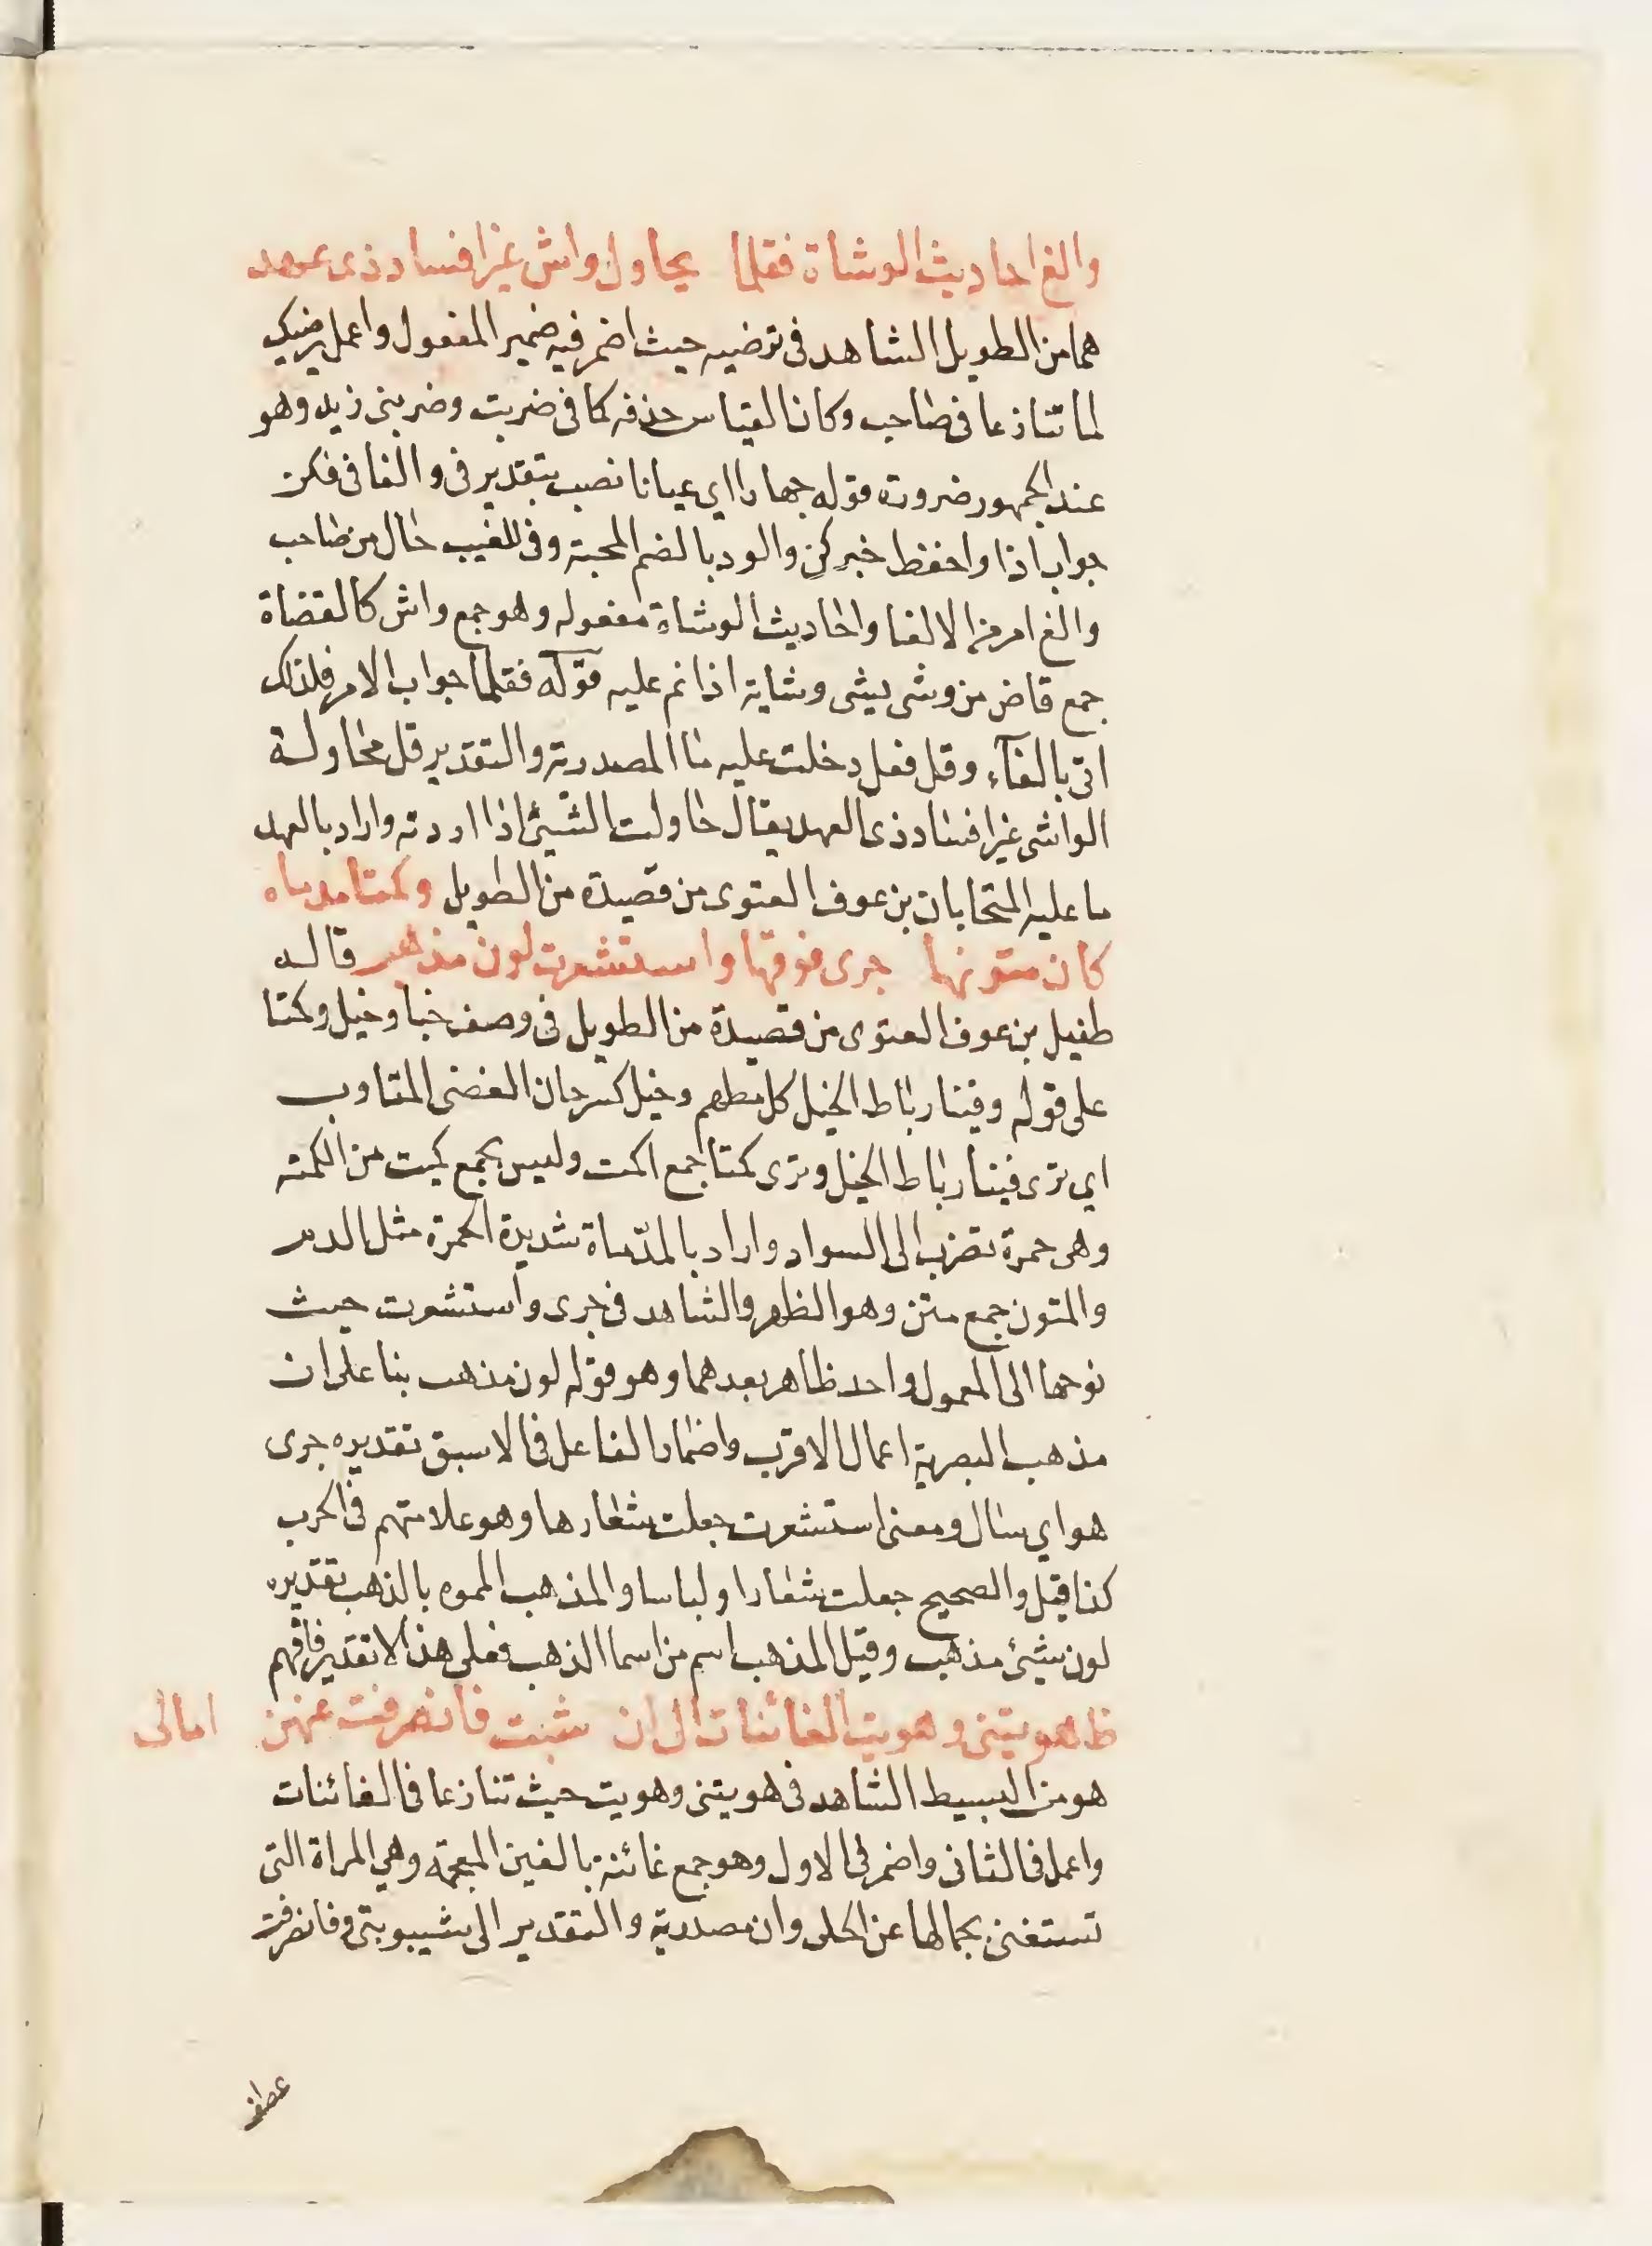 والغ احاديث الوشاة فقلما يحاول واش غير افساد ذى عهد
هما من الطويل الشاهد فى ترضيه حيث اضمر فيه ضمير المفعول واعمل يرضيك
لما تنازعا فى صاحب وكان القياس حذفه كما فى ضربت وضربنى زيد وهو
عند الجمهور ضرورة قوله جهارا اي عيانا نصب بتقدير فى والفا فى فكن
جواب اذا واحفظ خبر كن والود بالضم المحبة وفى للغيب حال من صاحب
والغ امر من الالغا واحاديث الوشاة مفعوله وهو جمع واش كالقضاة
جمع قاض من وشى يشى وشاية اذا نم عليه قوله فقلما جواب الامر فلذلك
اتى بالفآء وقل فعل دخلت عليه ما المصدرية والتقدير قل محاولة
الواشى غير افساد ذى العهد يقال حاولت الشيئ اذا اردته واراد بالعهد
ما عليه المتحابان بن عوف الغنوى من قصيدة من الطويل وكمتا مدماه
كان متونها جرى فوقها واستشعرت لون مذهب قاله
طفيل بن عوف الغنوى من قصيدة من الطويل فى وصف خبا وخيل وكمتا
على قوله وفينا رباط الخيل كل مطهم وخيل كسرحان الغضى المتاوب
اي ترى فينا رباط الخيل وترى كمتا جمع اكمت وليس بجمع كميت من الكمتة
وهى حمرة تضرب الى السواد واراد بالمدّماة شديدة الحمرة مثل الدم
والمتون جمع متن وهو الظهر والشاهد فى جرى واستشعرت حيث
توجها الى المعمول واحد ظاهر بعدهما وهو قوله لون مذهب بنا على ان
مذهب البصرية اعمال الاقرب واضمار الفاعل فى الاسبق تقديره جرى
هو اي سال ومعنى استشعرت جعلت شعارها وهو علامتهم فى الحرب
كذا قيل والصحيح جعلت شعارا ولباسا والمذهب المموه بالذهب تقديره
لون شيئ مذهب وقيل المذهب اسم من اسما الذهب فعلى هذا لا تقدير فافهم
ظ هويتنى وهويت الغانيات الى ان شبت فانصرفت عنهن امالى
هو من البسيط الشاهد فى هويتنى وهويت حيث تنازعا فى الغائنات
واعمل فى الثانى واضمر فى الاول وهو جمع غائنة بالغين المعجمة وهي المراة التى
تستغنى بجمالها عن الحلى وان مصدرية والتقدير الى شيبوبتى وفانصرفت
عطف